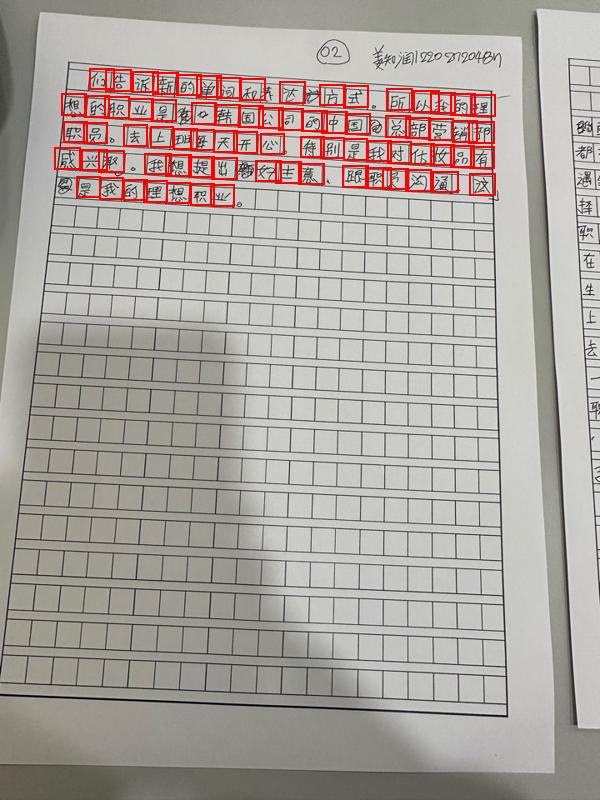 02 姜知润
们告诉新的单词和表达方式。所以我的理
想的职业是在韩国公司的中国总部营销部
职员。去上班每天开心。特别是我对化妆品有
感兴趣。我想提出好主意、跟职员沟通。这
是我的理想职业。
都
遇
择
职
在
生
上
去
一
职